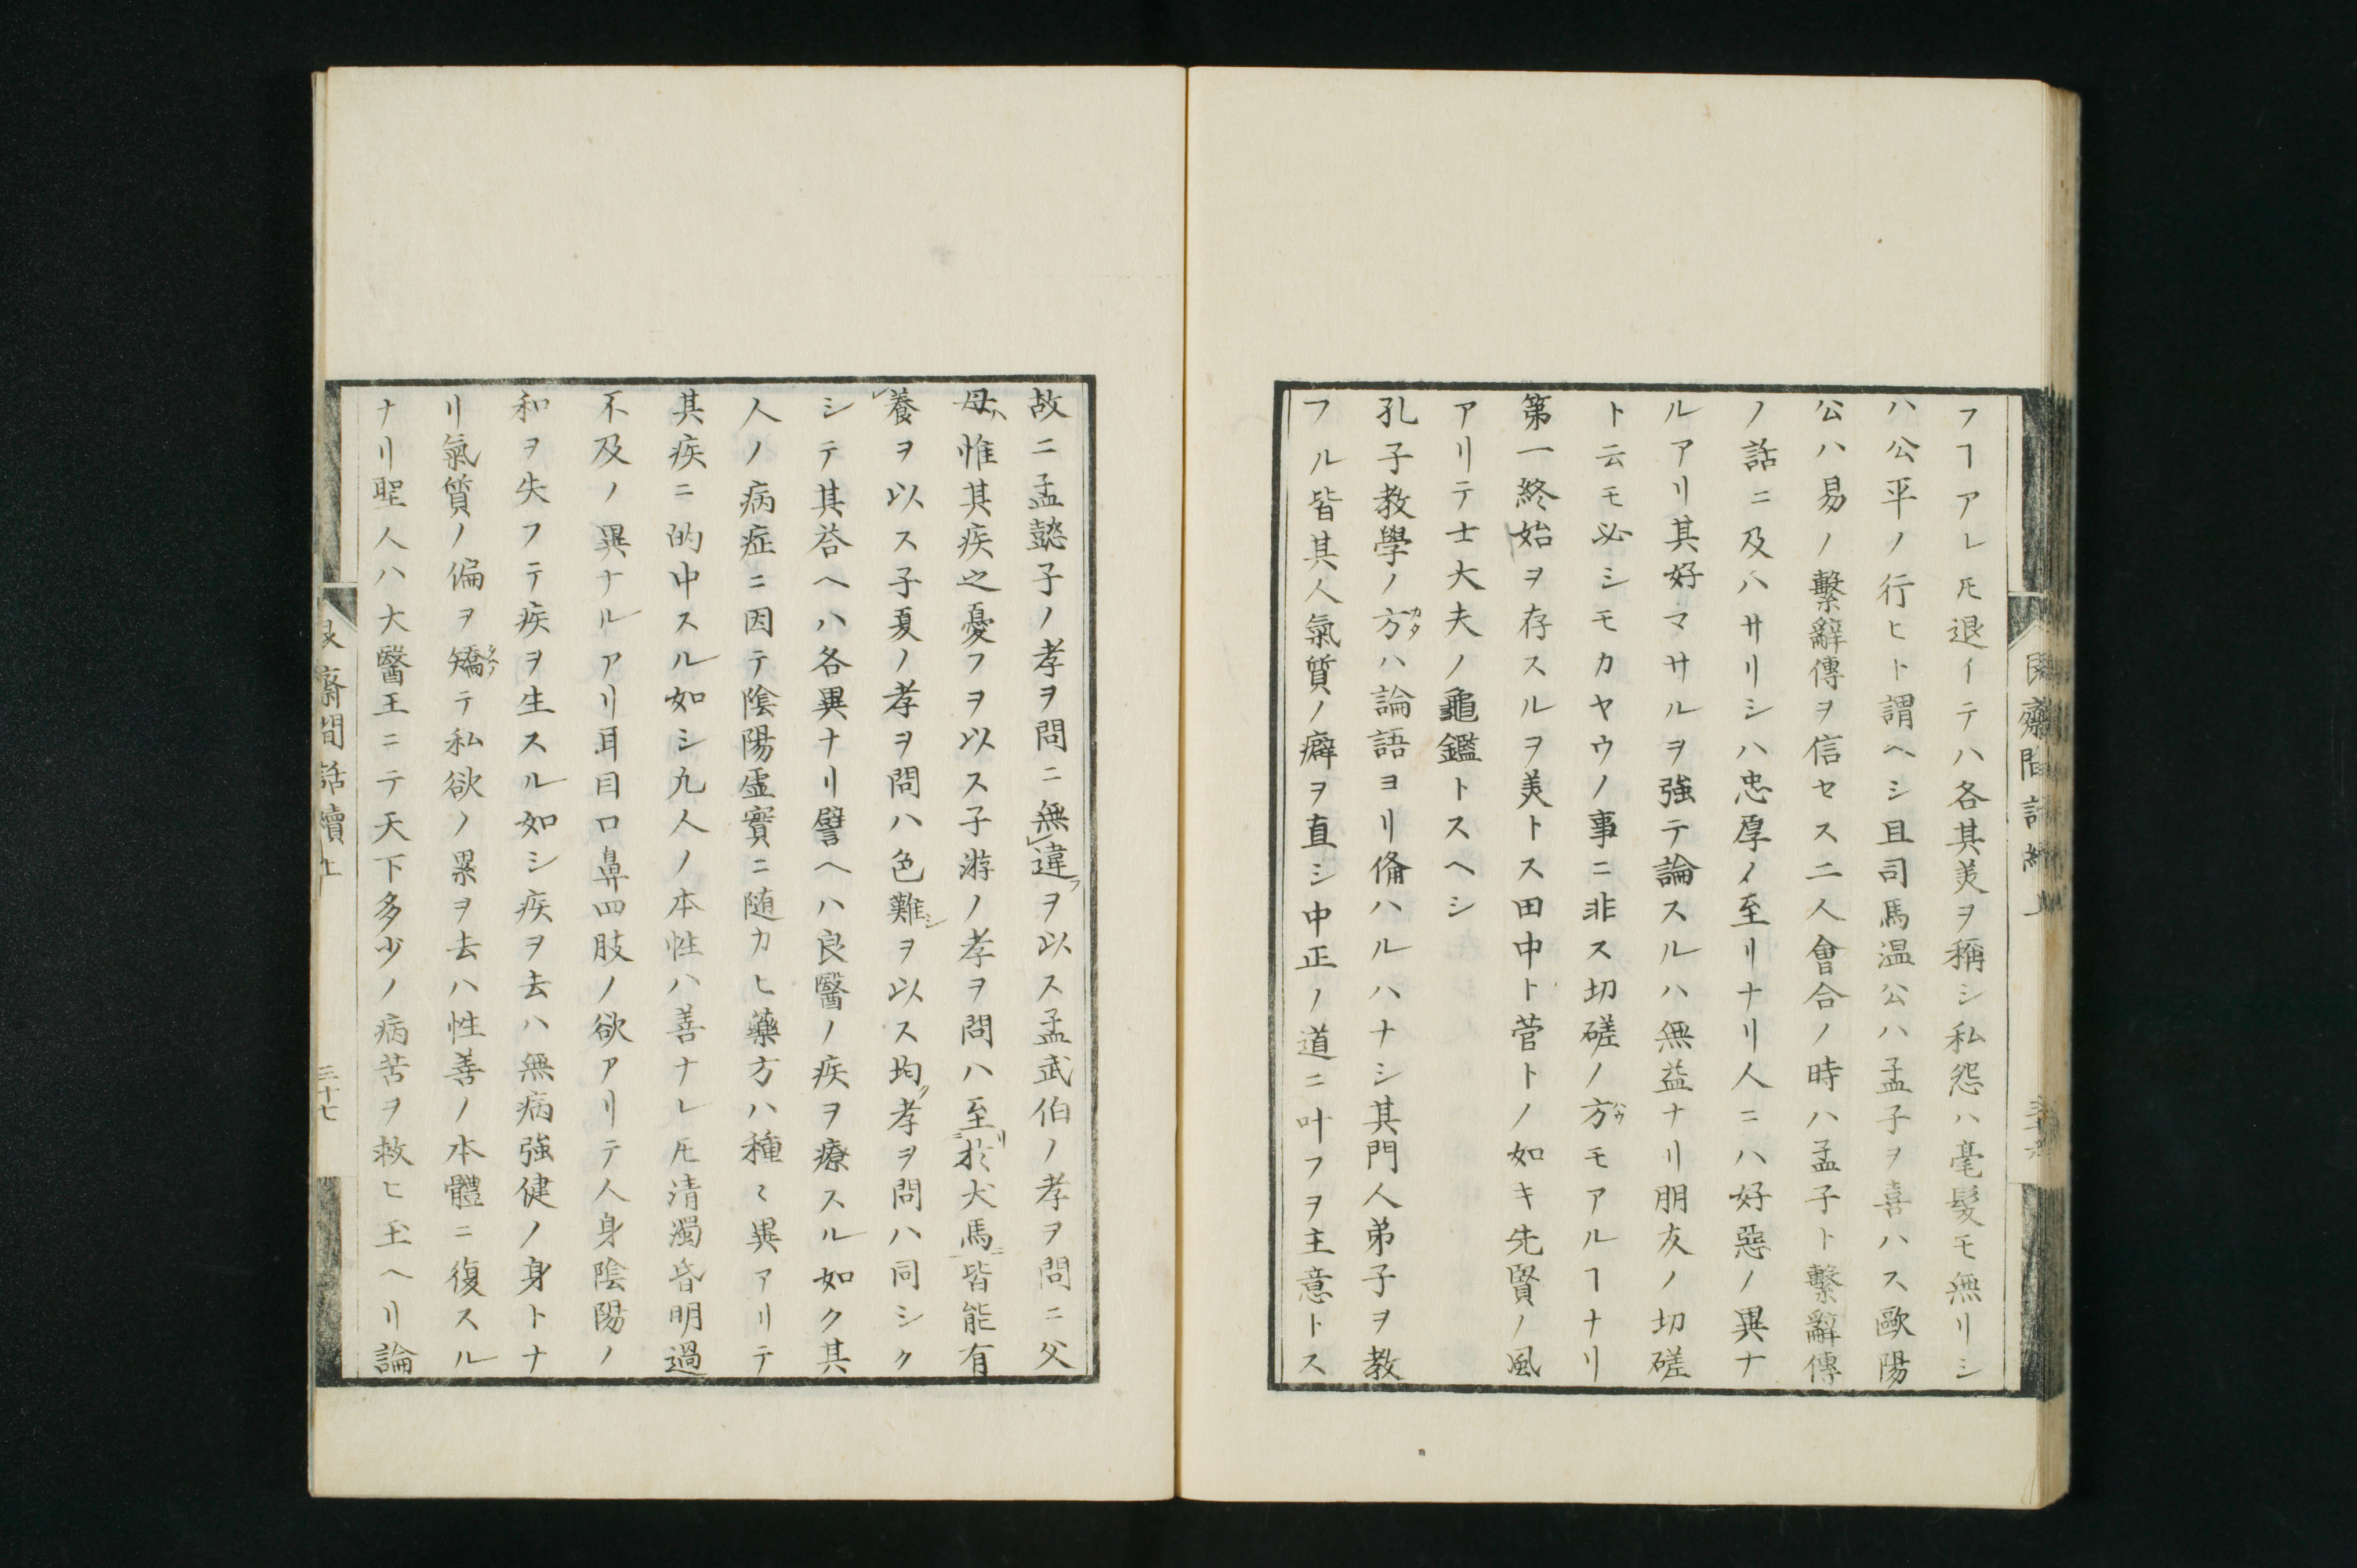 フヿアレ𪜈退イテハ各其美ヲ稱シ私怨ハ毫髮モ無リシ
ハ公平ノ行ヒト謂ヘシ且司馬温公ハ孟子ヲ喜ハス歐陽
公ハ易ノ繫辭傳ヲ信セス二人會合ノ時ハ孟子ト繫辭傳
ノ話ニ及ハサリシハ忠厚ノ至リナリ人ニハ好惡ノ異ナ
ルアリ其好マサルヲ強テ論スルハ無益ナリ朋友ノ切磋
ト云モ必シモカヤウノ事ニ非ス切磋ノ方モアルヿナリ
第一終始ヲ存スルヲ美トス田中ト菅トノ如キ先賢ノ風
アリテ士大夫ノ龜鑑トスヘシ
孔子教學ノ方ハ論語ヨリ備ハルハナシ其門人弟子ヲ教
フル皆其人氣質ノ癖ヲ直シ中正ノ道ニ叶フヲ主意トス
故ニ孟懿子ノ孝ヲ問ニ無違ヲ以ス孟武伯ノ孝ヲ問ニ父
母惟其疾之憂フヲ以ス子游ノ孝ヲ問ハ至於犬馬皆能有
養ヲ以ス子夏ノ孝ヲ問ハ色難ヲ以ス均孝ヲ問ハ同シク
シテ其荅ヘハ各異ナリ譬ヘハ良醫ノ疾ヲ療スル如ク其
人ノ病症ニ因テ陰陽虛實ニ随カヒ藥方ハ種〻異アリテ
其疾ニ的中スル如シ凢人ノ本性ハ善ナレ𪜈清濁昏明過
不及ノ異ナルアリ耳目口鼻四肢ノ欲アリテ人身陰陽ノ
和ヲ失フテ疾ヲ生スル如シ疾ヲ去ハ無病強健ノ身トナ
リ氣質ノ偏ヲ矯テ私欲ノ累ヲ去ハ性善ノ本體ニ復スル
ナリ聖人ハ大醫王ニテ天下多少ノ病苦ヲ救ヒ玉ヘリ論
艮齋間話續上
三十七